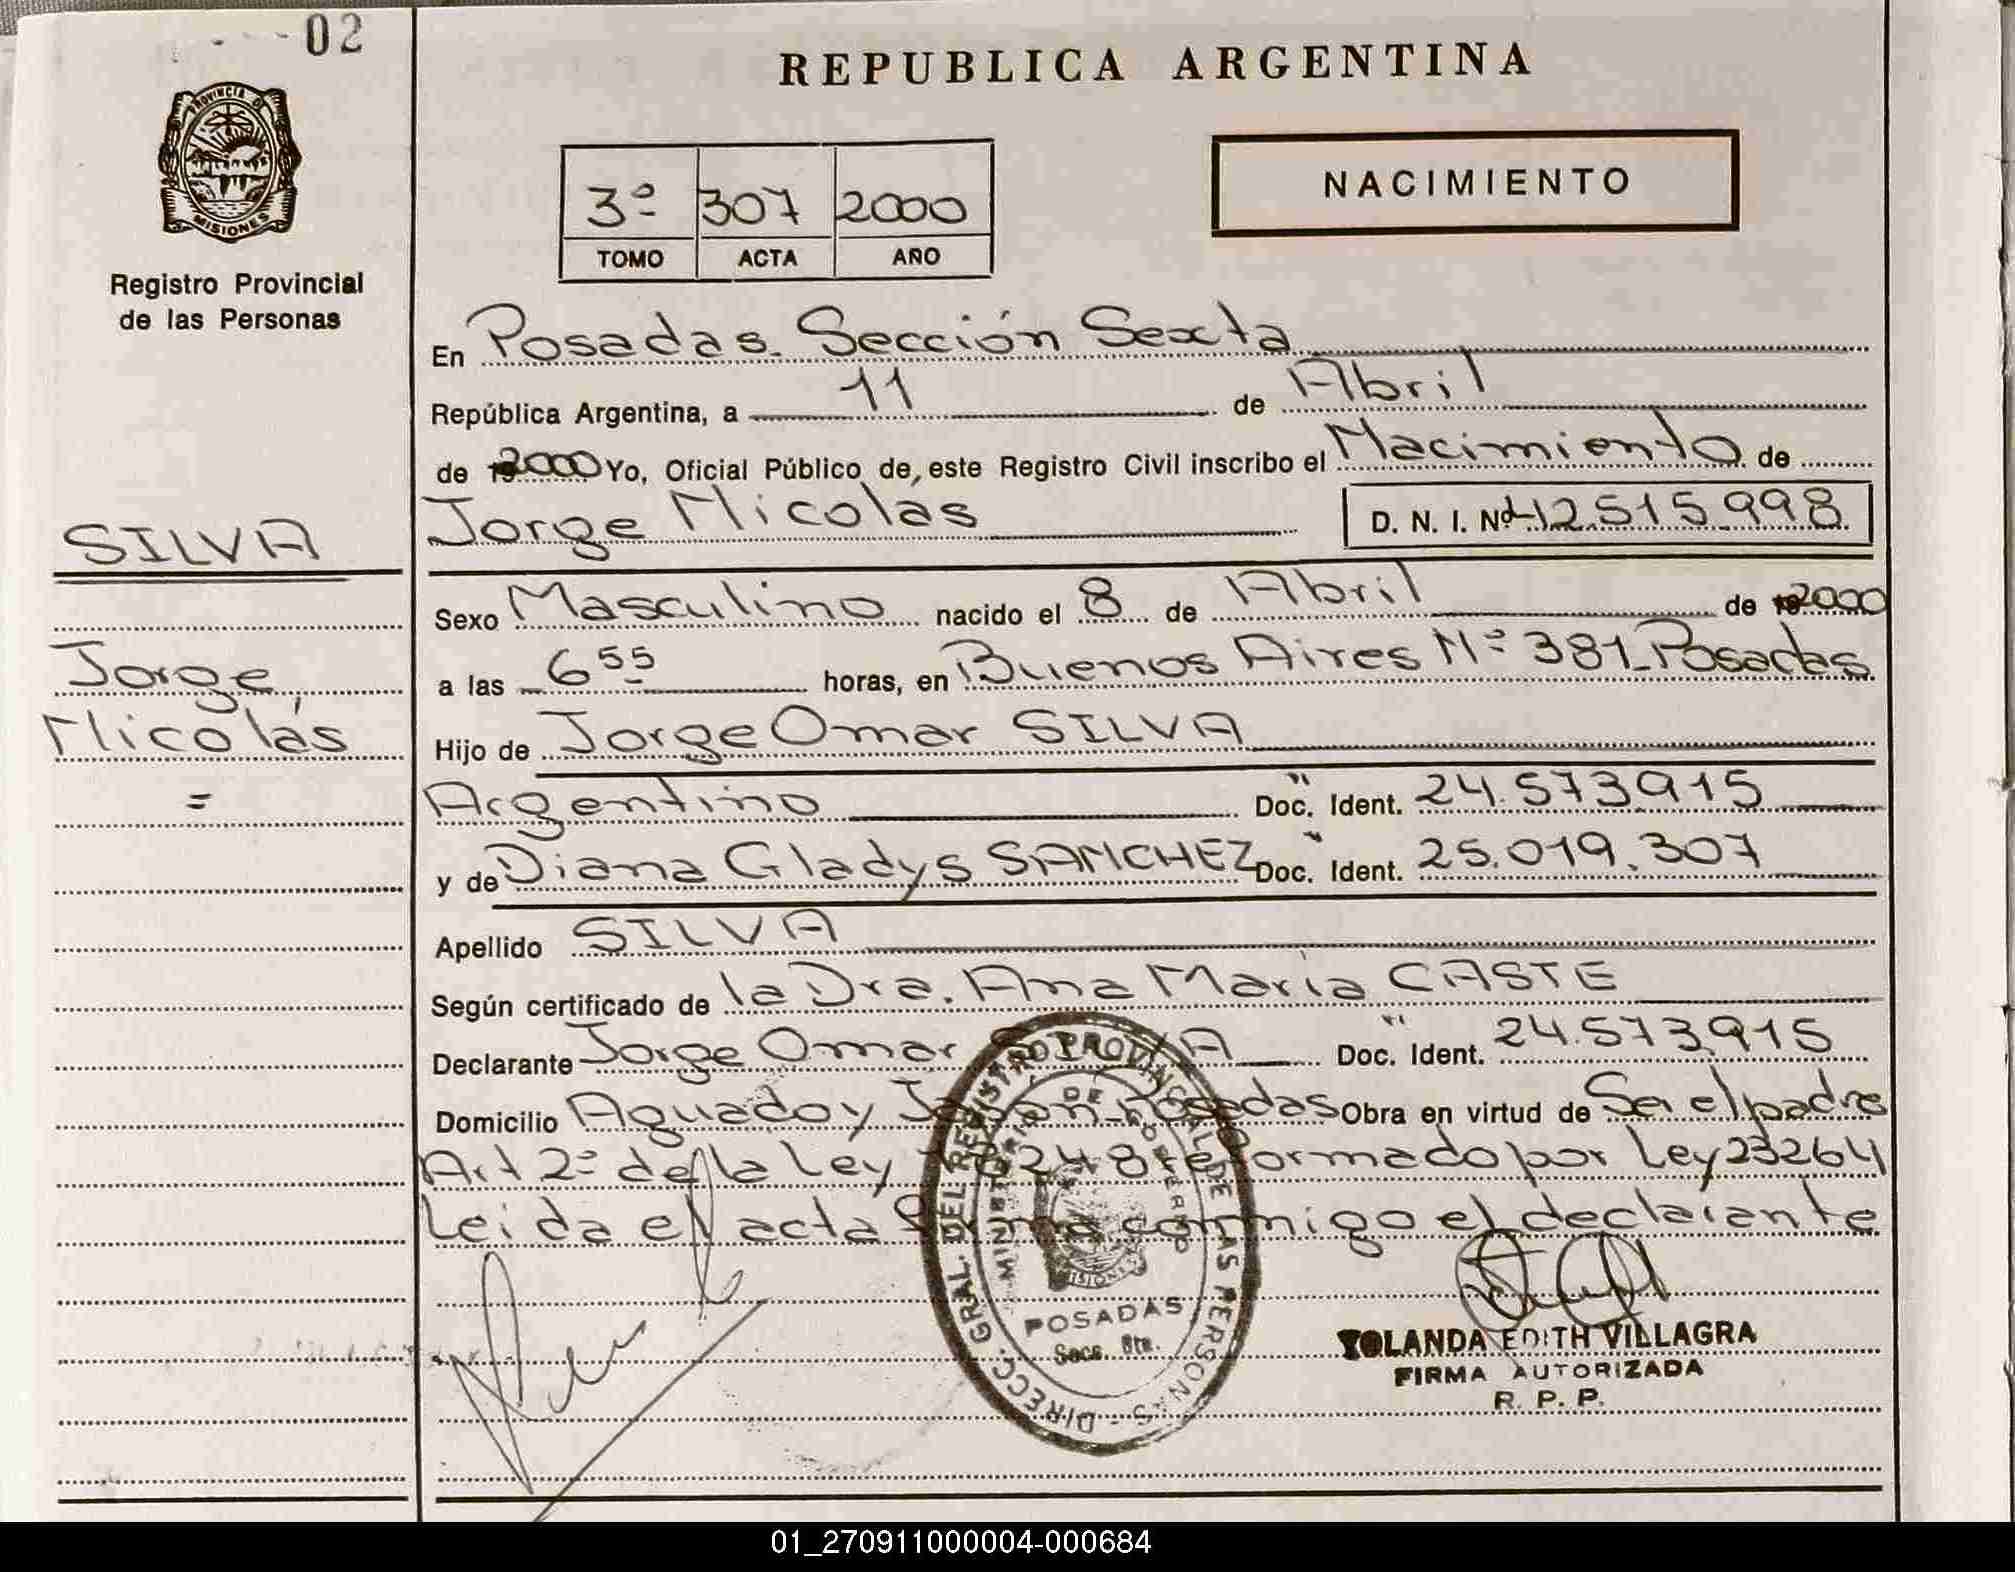 02
REPUBLICA ARGENTINA
PROVINCIA DE
MISIONES
Registro Provincial
de las Personas
3º 307 2000
TOMO ACTA AÑO
NACIMIENTO
En Posadas. Sección Sexta
República Argentina, a 11 de Abril
de 2000 Yo, Oficial Público de, este Registro Civil inscribo el Nacimiento de
Jorge Nicolás D. N. I. Nº 42.515.998
SILVA
Jorge,
Nicolás
=
Sexo Masculino nacido el 8 de Abril de 2000
a las 6 55 horas, en Buenos Aires Nº 381-Posadas
Hijo de Jorge Omar SILVA
Argentino Doc. Ident. 24.573.915
y de Diana Gladys SANCHEZ Doc. Ident. 25.019.307
Apellido SILVA
Según certificado de la Dra. Ana María CASTE
Declarante Jorge Omar SILVA Doc. Ident. 24.573.915
Domicilio Aguado y Japón-Posadas Obra en virtud de Ser el padre
Art 2º de la Ley 18248 reformado por Ley 23264
Leida el acta firma conmigo el declarante
DIRECC. GRAL. DEL REGISTRO PROVINCIAL DE LAS PERSONAS -
MINISTERIO DE GOBIERNO
MISIONES
POSADAS
Secc. 6ta.
YOLANDA EDITH VILLAGRA
FIRMA AUTORIZADA
R. P. P.
01_270911000004-000684